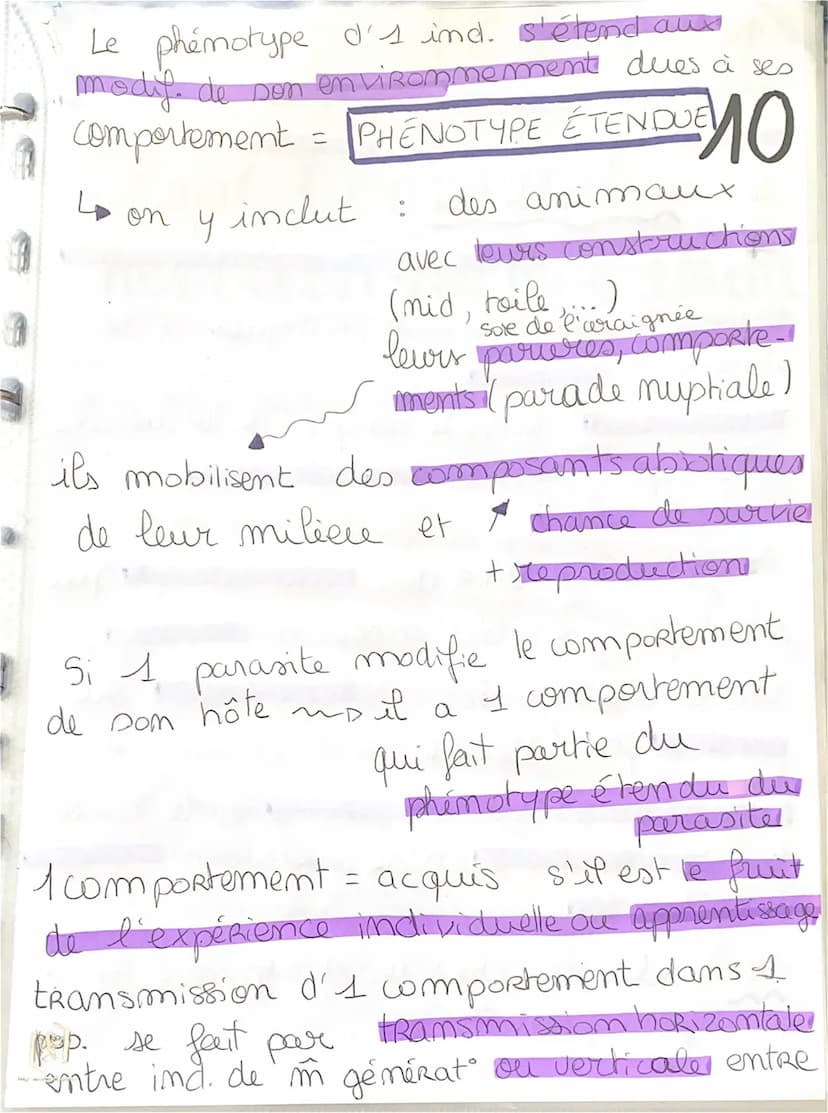 Le phénotype d'1 ind. s'étend aux
modif. de son environnement dues à ses
comportement = PHÉNOTYPE ÉTENDUE 10
↳ on y inclut : des animaux
avec leurs constructions
(nid, toile, ...)
soie de l'araignée
leurs parures, comporte-
ments (parade nuptiale)
ils mobilisent des composants abiotiques
de leur milieu et ↗ chance de survie
+ reproduction
Si 1 parasite modifie le comportement
de son hôte ~> il a 1 comportement
qui fait partie du
phénotype étendu du
parasite
1 comportement = acquis s'il est le fruit
de l'expérience individuelle ou apprentissage
transmission d'1 comportement dans 1
pop. se fait par transmission horizontale
entre ind. de m̂ générat° ou verticale entre